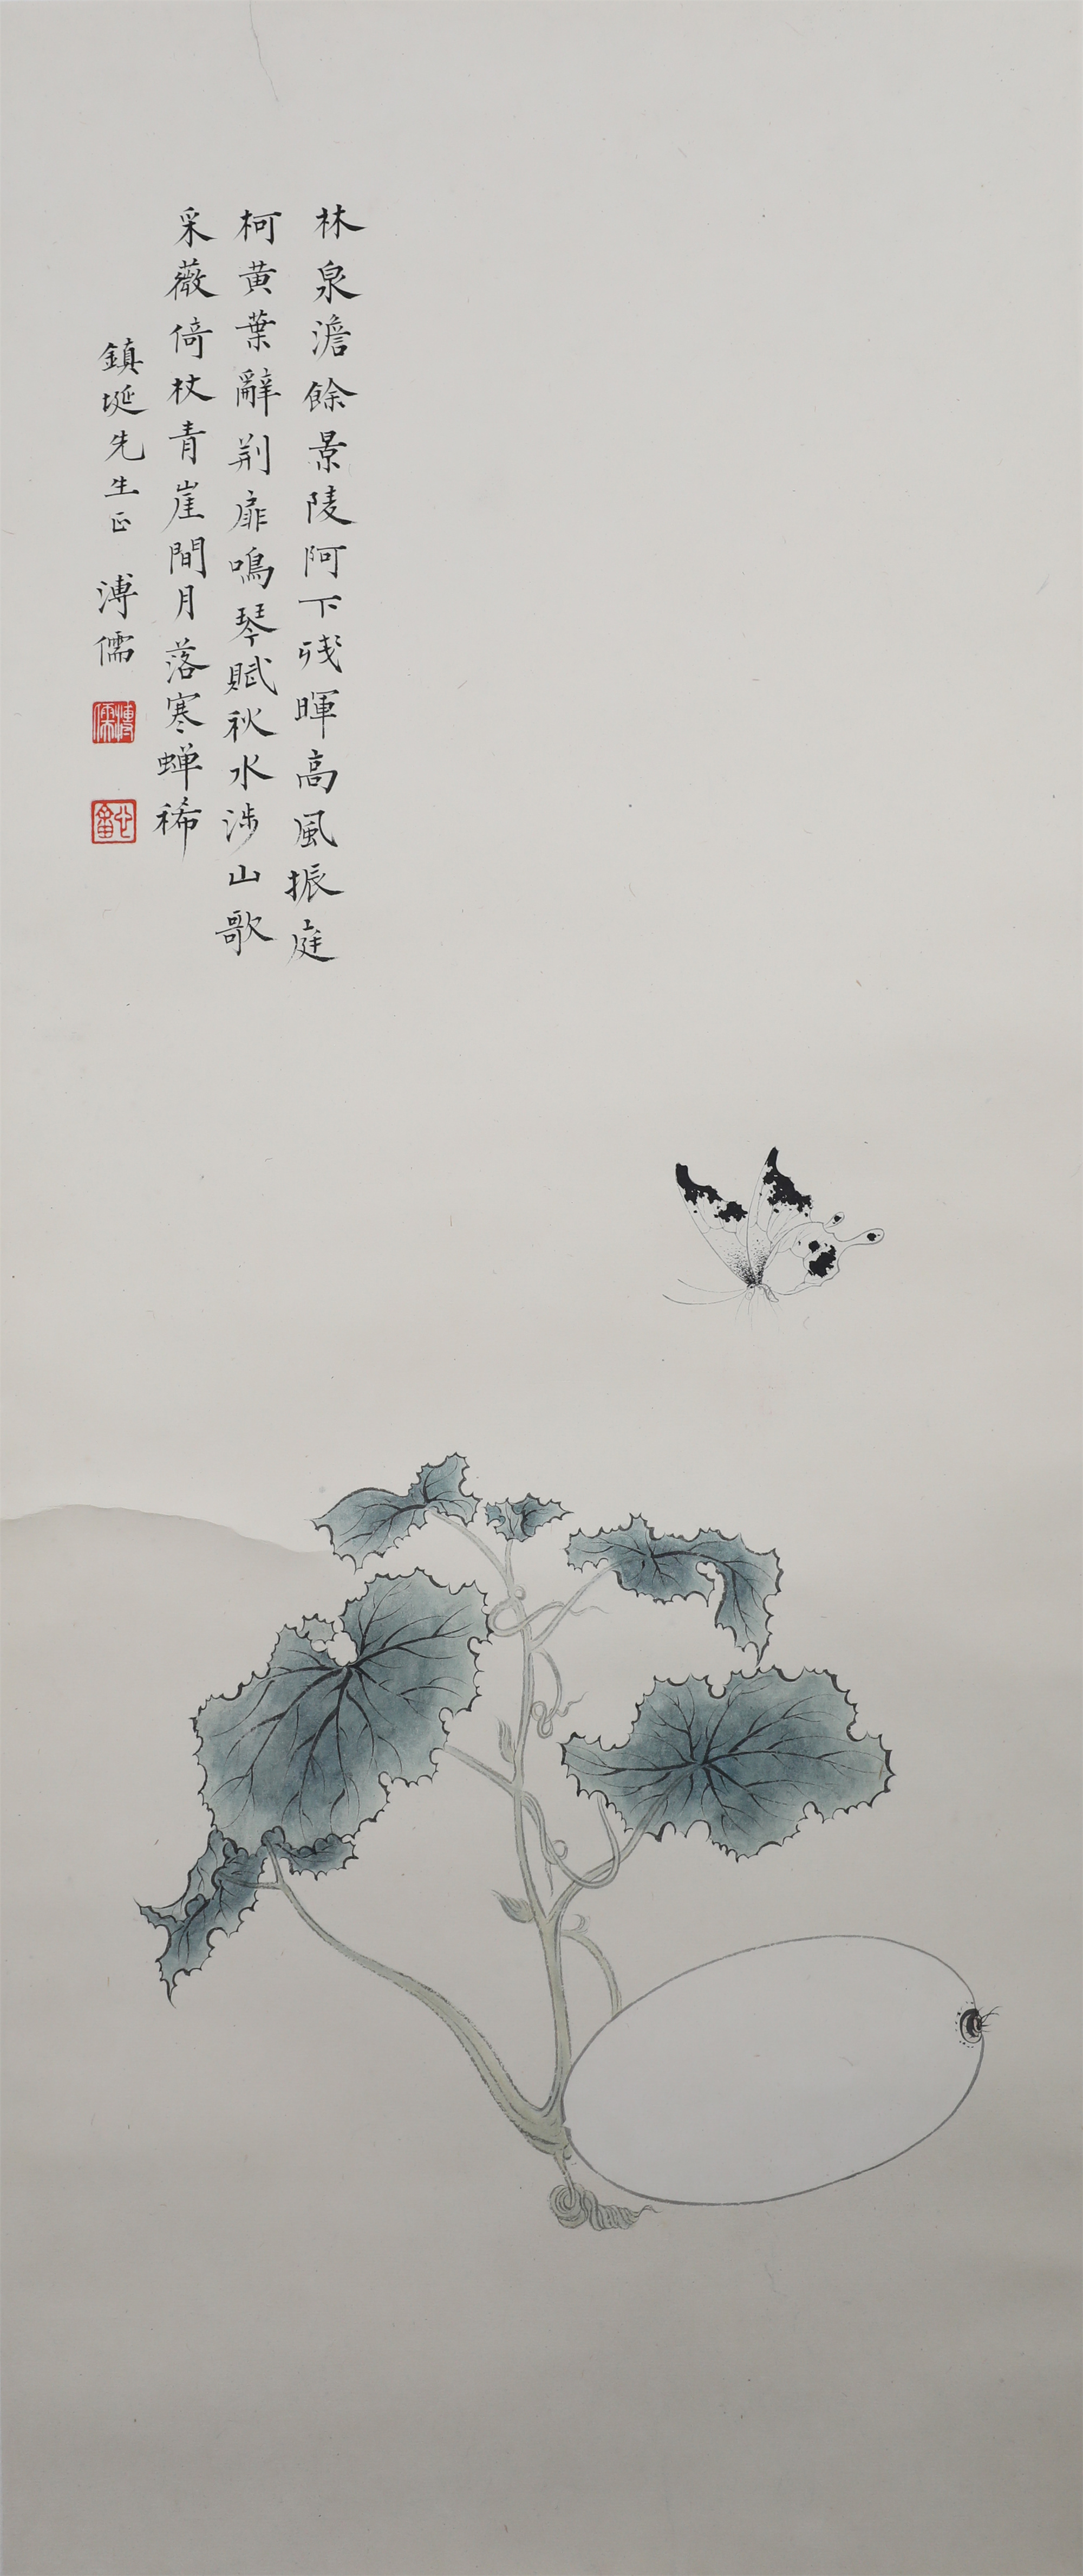 林泉澹餘景陵阿下殘暉高風振庭
柯黃葉辭荊扉鳴琴賦秋水涉山歌
采薇倚杖青崖間月落寒蟬稀
鎮埏先生正 溥儒
溥儒
心畬